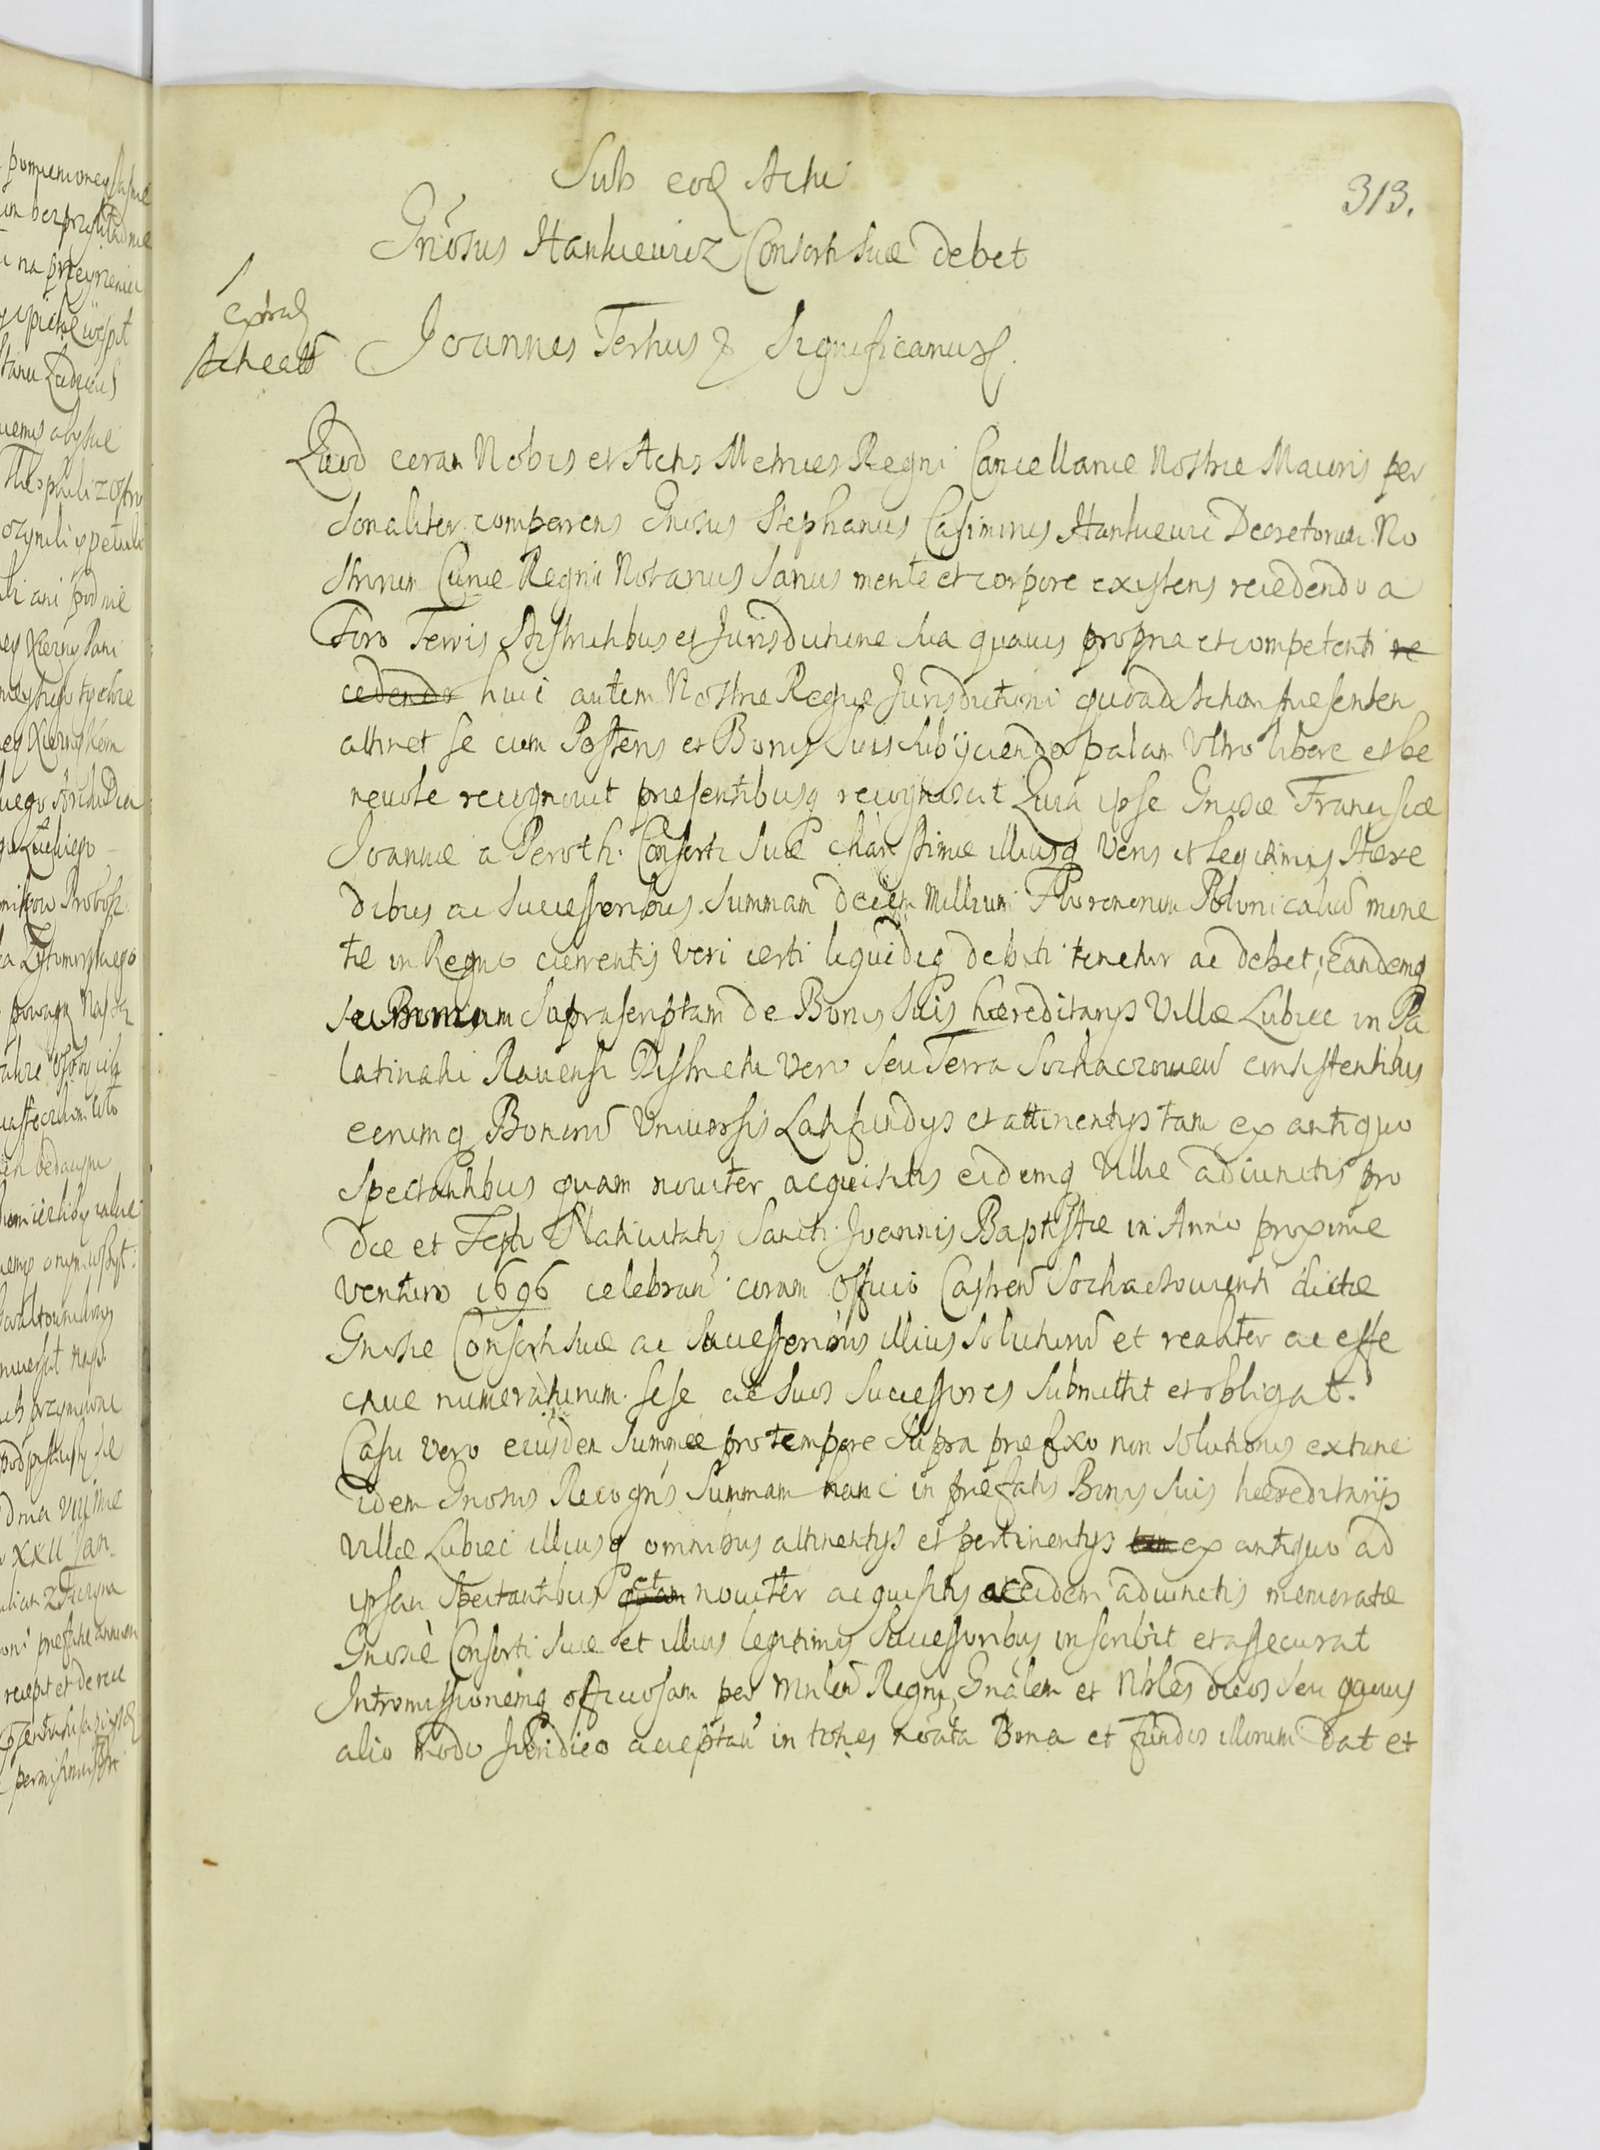 313.
Sub eod Actu
Gnōsus Hankiewicz Consorti Suæ debet
Joannes Tertius & Significamus
Quod coram Nobis et Actis Metrices Regni Cancellariæ Nostræ Maioris per
sonaliter comparens Gnosus Stephanus Casimirus Hankiewic Decretorum No
strorum Curiæ Regni Notarius Sanus mente et corpore existens recedendo a
Foro Terris Districtibus et Jurisdictione sua quavis propria et competenti re
cedendo huic autem Nostræ Regiæ Jurisdictioni quoad Actum præsentem
attinet se cum Posteris et Bonis Suis Subijciendo palam Ultro libere et be
nevole recognovit præsentibusq recognoscit Quia ipse Gnosæ Franciscæ
Joannæ a Peroth Consorti Suæ charissimæ illiusq Veris et Legitimis Hære
dibus ac Successoribus Summam decem Millium Florenorum Polonicaliū mone
tæ in Regno currentis Veri certi liquidiq debiti tenetur ac debet, Eandemq
Summam Suprascriptam de Bonis Suis hæreditarys Villæ Lubiec in Pa
latinatu Ravensi Districtu Vero Seu Terra Sochaczoviēn consistentibus
eorumq Bonorū Universis Latifundys et attinentys tam ex antiquo
Spectantibus quam noviter acquisitis eidemq Villæ adiunctis pro
die et Festo Nativitatis Sancti Joannis Baptistæ in Anno proxime
venturo 1696 celebran. coram Officio Castrēn Sochaczoviensi dictæ
Gnosæ Consorti suæ ac Successoribus illius Soluturū et realiter ac effe
ctive numeraturum sese ac suos Successores Submittit et obligat.
Casu vero eiusdem Summæ pro tempore Supra præfixo non Solutionis extunc
idem Gnosus Recogns Summam hanc in præfatis Bonis Suis hæreditarijs
Villæ Lubiec illiusq omnibus attinentys et pertinentys tam ex antiquo ad
ipsam Spectantibus quam noviter acquisitis ac eidem adiunctis memoratæ
Gnosæ Consorti Suæ et illius legitimis Successoribus inscribit et assecurat
Intromissionemq officiosam per Mnlem Regni Gnālem et Nbles duos Seu quavis
alio modo Juridico acceptan in toties noāta Bona et fundos illorum dat et